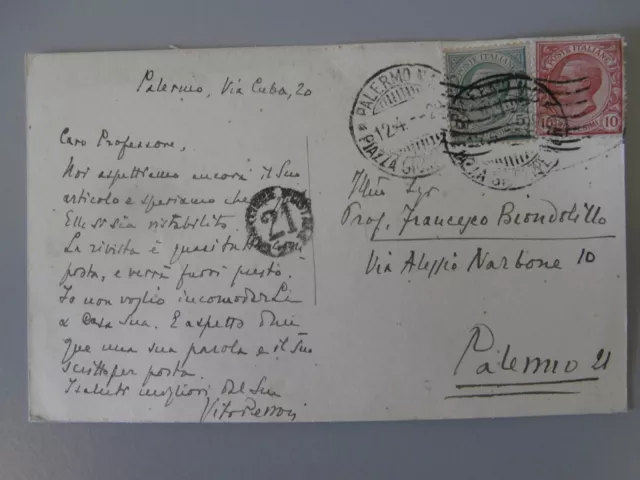 Palermo, Via Cuba, 20
Caro Professore,
Noi aspettiamo ancora il Suo
articolo e speriamo che
Ella si sia ristabilito.
La rivista è quasi tutta
posta, e verrà fuori presto.
Io non voglio incomodarLa
a casa Sua. E aspetto dun
que una sua parola e il Suo
scritto per posta.
I saluti migliori dal Suo
21
POSTE ITALIANE
POSTE ITALIANE
10 10
PALERMO
12.4
PIAZZA
Prof. Francesco Biondolillo
Via Alessio Narbone 10
Palermo 21